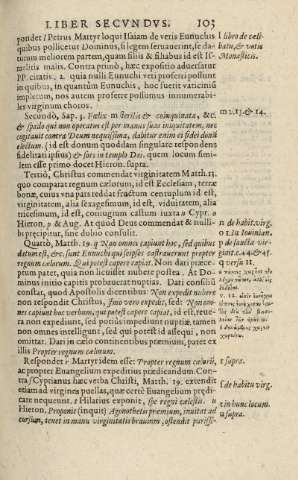 LIBER SECVNDVS. 103
pondet ſ Petrus Martyr loqui Iſaiam de veris Eunuchis
quibus pollicetur Dominus, ſi legem ſeruauerint, ſe da-
turum meliorem partem, quam filiis & filiabus id eſt Iſ-
raëlitis malis. Contra primò, hæc expoſitio aduerſatur
PP. citatis. 2. quia nulli Eunuchi veri proferri poſſunt
in quibus, in quantum Eunuchis, hoc fuerit vaticiniū
impletum, nos autem proferre poſſumus innumerabi-
les virginum choros.
Secundò, Sap. 3. Fœlix m ſterilis & coinquinata, &c.
& ſpado qui non operatus eſt per manus ſuas iniquitatem, nec
cogitauit contra Deum nequiſſima, dabitur enim ei fidei donū
electum. (id eſt donum quoddam ſingulare reſpondens
fidelitati ipſius) & ſors in templo Dei. quem locum ſimi-
lem eſſe primo docet Hieron. ſupra.
Tertiò, Chriſtus commendat virginitatem Matth. 13.
quo comparat regnum cælorum, id eſt Eccleſiam, terræ
bonæ, cuius vna pars reddat fructum centuplum id eſt,
virginitatem, alia ſexageſimum, id eſt, viduitatem, alia
triceſimum, id eſt, coniugium caſtum iuxta n Cypr. o
Hieron. p & Aug. At quod Deus commendat & nulli-
bi præcipit, ſine dubio conſulit.
Quartò, Matth. 19. q Non omnes capiunt hoc, ſed quibus
datum eſt, &c. ſunt Eunuchi qui ſeipſos caſtrauerunt propter
regnum cælorum. Qui poteſt capere capiat. Non dari præce-
ptum patet, quia non licuiſſet nubere poſtea. At Do-
minus initio capitis probauerat nuptias. Dari conſiliū
conſtat, quod Apoſtolis dicentibus Non expedit nubere
non reſpondit Chriſtus, ſimo vero expedit, ſed: Non om-
nes capiunt hoc verbum, qui poteſt capere capiat. id eſt, reue-
ra non expediret, ſed potiùs impediunt nuptiæ tamen
non omnes intelligunt, ſed qui poteſt id aſſequi, non
omittat. Dari in cælo continentibus præmium, patet ex
illis Propter regnum cælorum.
Reſpondet r Martyr idem eſſe: Propter regnum cælorū,
ac propter Euangelium expeditius prædicandum. Con-
tra ſ Cyprianus hæc verba Chriſti, Matth. 19. extendit
etiam ad virgines puellas, quæ certè Euangelium prædi-
care nequeunt. t Hilarius exponit, ſpe regni cæleſtis. u
Hieron. Proponit (inquit) Agonothetes præmium, inuitat ad
curſum, tenet in manu virginitatis brauium, oſtendit puriſſi-
l libro de celi-
batu, & votis
Monaſticis.
m v. 13. & 14.
n de habit. virg.
o 1. in Iouinian.
p de ſancta vir-
ginit. c. 44. & 45.
q verſu 11.
r ſupra.
ſ de habitu virg.
t in hunc locum.
u ſupra.